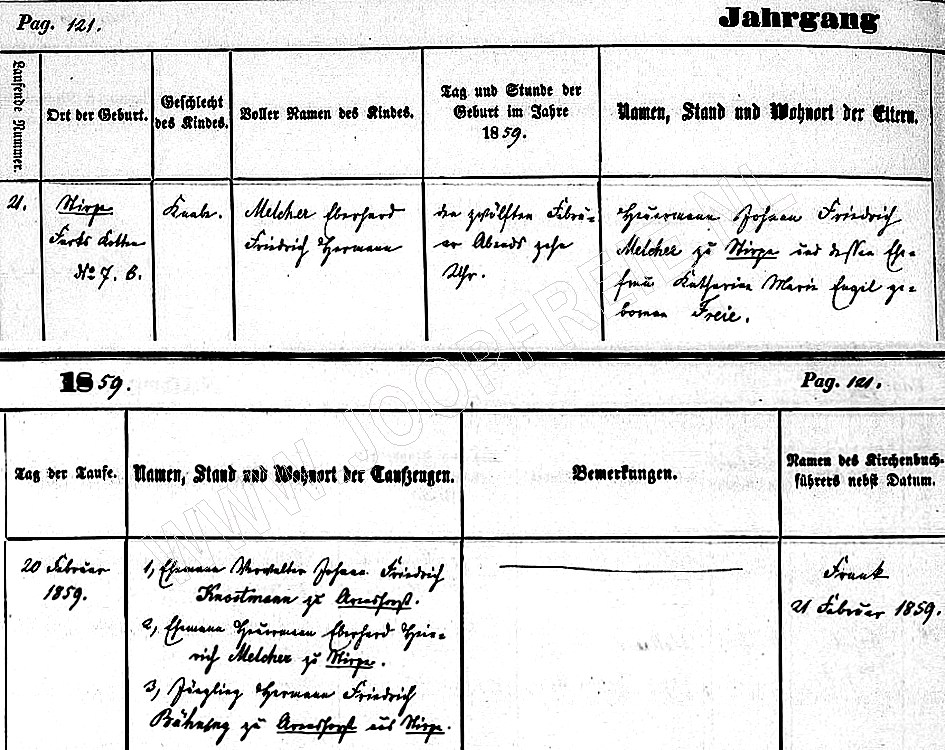 Pag. 121.
Jahrgang
Laufende Nummer.
Ort der Geburt.
Geschlecht
des Kindes.
Voller Namen des Kindes.
Tag und Stunde der
Geburt im Jahre
1859.
Namen, Stand und Wohnort der Eltern.
21.
Stirpe
Kotten
No 7. b.
Knabe.
Melcher Eberhard
Friedrich Hermann
den zwölften Febru-
ar Abends zehn
Uhr.
Heuermann Johann Friedrich
Melcher zu Stirpe und dessen Ehe-
frau Katharina Marie Engel ge-
borene Freie.
1859.
Pag. 121.
Tag der Taufe.
Namen, Stand und Wohnort der Taufzeugen.
Bemerkungen.
Namen des Kirchenbuch-
führers nebst Datum.
20 Februar
1859.
1, Ehemann Verwalter Johann Friedrich
Knostmann zu Arenshorst.
2, Ehemann Heuermann Eberhard Hein-
rich Melcher zu Stirpe.
3, Jüngling Hermann Friedrich
zu Arenshorst aus Stirpe.
Frank
21 Februar 1859.
WWW.JOOPFREIE.NL